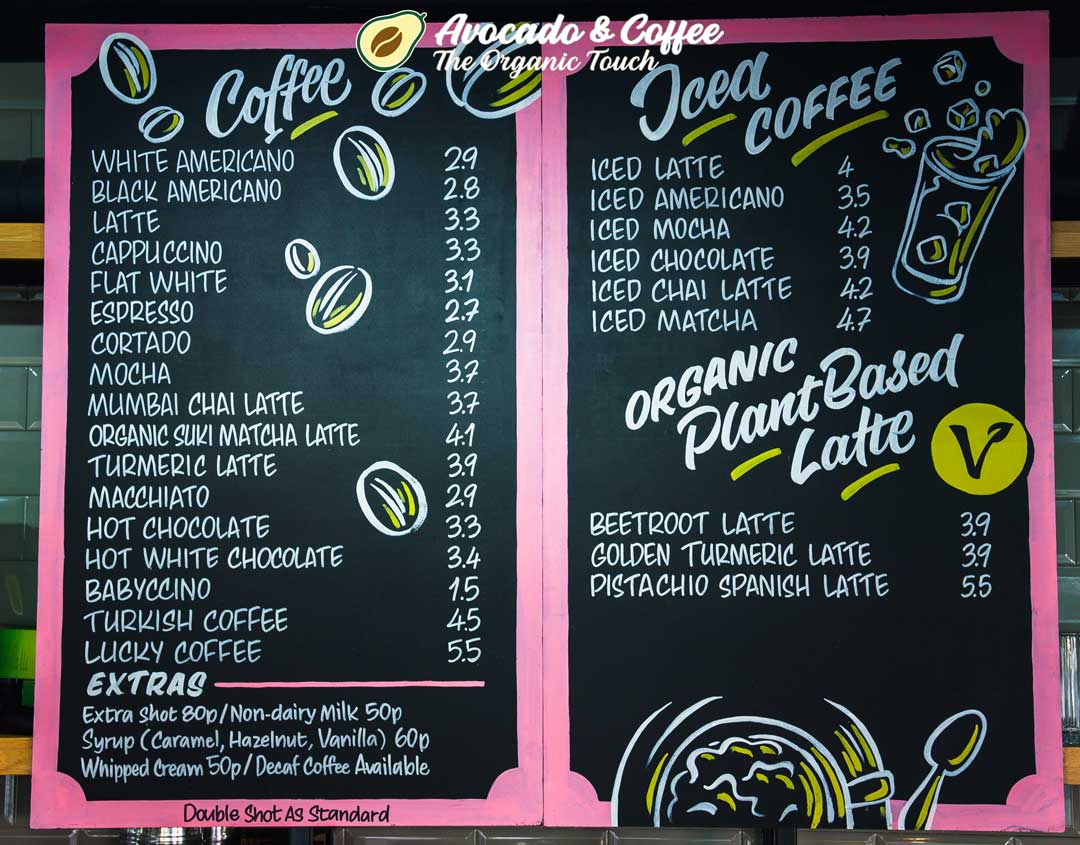 Avocado & Coffee
The Organic Touch
Coffee
WHITE AMERICANO 2.9
BLACK AMERICANO 2.8
LATTE 3.3
CAPPUCCINO 3.3
FLAT WHITE 3.1
ESPRESSO 2.7
CORTADO 2.9
MOCHA 3.7
MUMBAI CHAI LATTE 3.7
ORGANIC SUKI MATCHA LATTE 4.1
TURMERIC LATTE 3.9
MACCHIATO 2.9
HOT CHOCOLATE 3.3
HOT WHITE CHOCOLATE 3.4
BABYCCINO 1.5
TURKISH COFFEE 4.5
LUCKY COFFEE 5.5
EXTRAS
Extra Shot 80p/Non-dairy Milk 50p
Syrup (Caramel, Hazelnut, Vanilla) 60p
Whipped Cream 50p/Decaf Coffee Available
Double Shot As Standard
Iced
COFFEE
ICED LATTE 4
ICED AMERICANO 3.5
ICED MOCHA 4.2
ICED CHOCOLATE 3.9
ICED CHAI LATTE 4.2
ICED MATCHA 4.7
ORGANIC
Plant Based
Latte
V
BEETROOT LATTE 3.9
GOLDEN TURMERIC LATTE 3.9
PISTACHIO SPANISH LATTE 5.5